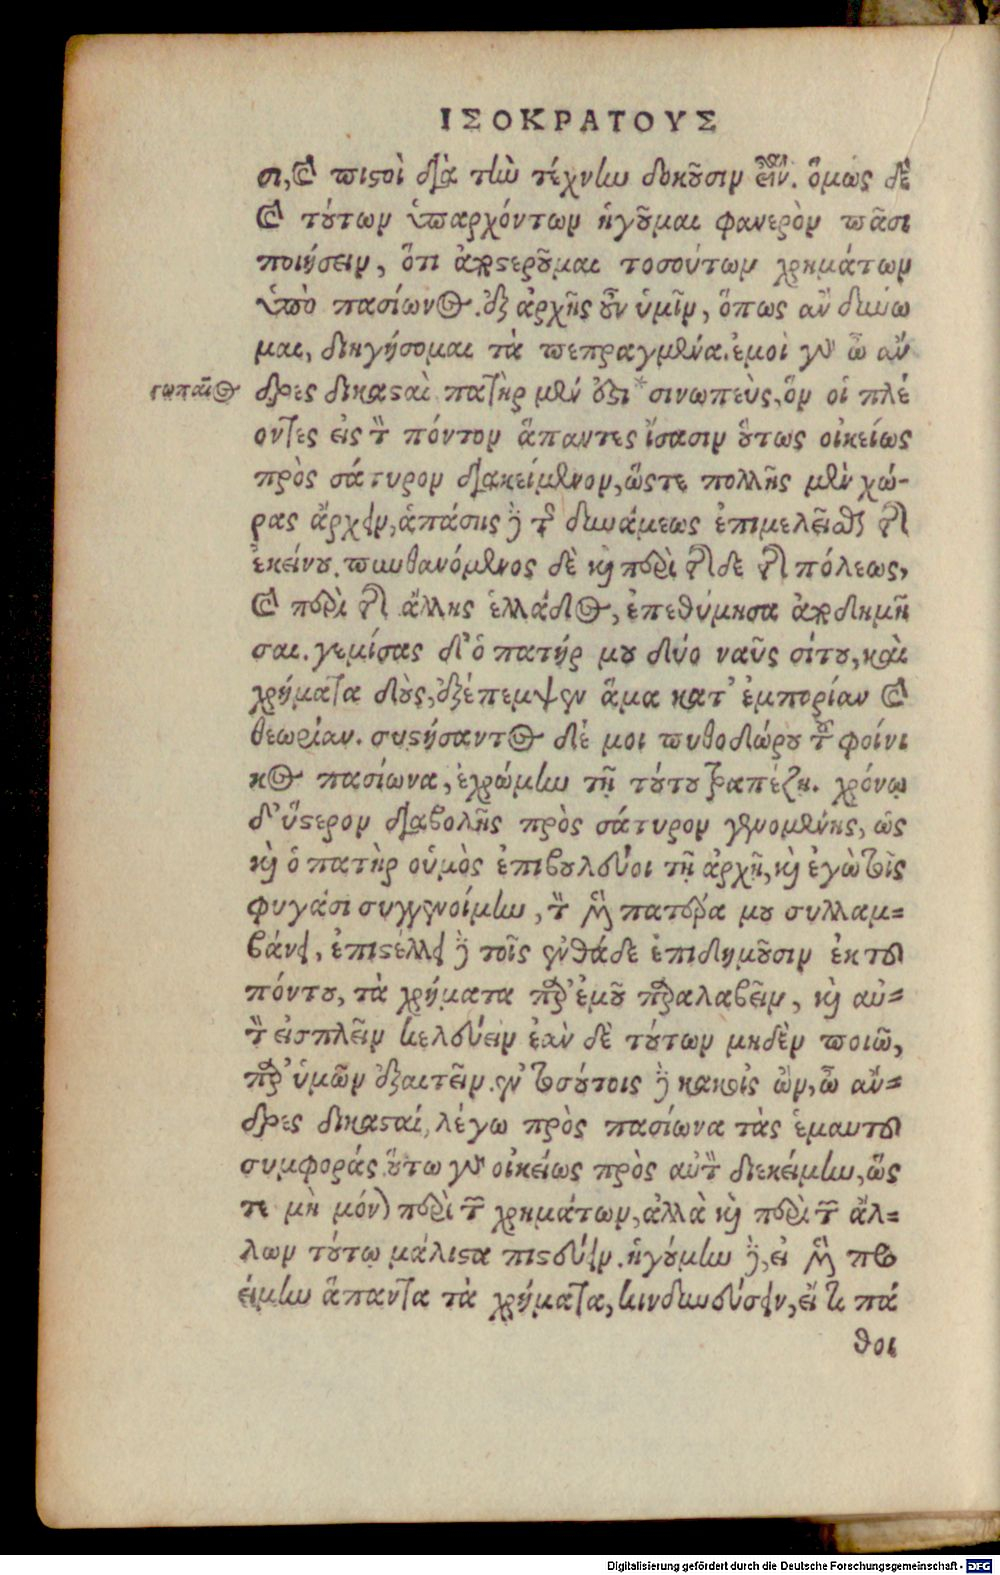 ΙΣΟΚΡΑΤΟΥΣ
σι, καὶ πιστοὶ διὰ τὴν τέχνην δοκοῦσιν εἶναι. ὅμως δὲ
καὶ τούτων ὑπαρχόντων ἡγοῦμαι φανερὸν πᾶσι
ποιήσειν, ὅτι ἀποστεροῦμαι τοσούτων χρημάτων
ὑπὸ πασίωνος. ἐξ ἀρχῆς οὖν ὑμῖν, ὅπως ἂν δυνώ
μαι, διηγήσομαι τὰ πεπραγμένα. ἐμοὶ γὰρ ὦ ἄν
δρες δικασταὶ πατὴρ μέν ἐστι * σινωπεὺς, ὃν οἱ πλέ
οντες εἰς τὸν πόντον ἅπαντες ἴσασιν οὕτως οἰκείως
πρὸς σάτυρον διακείμενον, ὥςτε πολλῆς μὲν χώ-
ρας ἄρχειν, ἁπάσης δὲ τῆς δυνάμεως ἐπιμελεῖσθαι τῆς
ἐκείνου. πυνθανόμενος δὲ καὶ περὶ τῆςδε τῆς πόλεως,
καὶ περὶ τῆς ἄλλης ἑλλάδος, ἐπεθύμησα ἀποδημῆ
σαι. γεμίσας δ' ὁ πατήρ μου δύο ναῦς σίτου, καὶ
χρήματα δοὺς, ἐξέπεμψεν ἅμα κατ' ἐμπορίαν καὶ
θεωρίαν. συστήσαντος δέ μοι πυθοδώρου τοῦ φοίνι
κος πασίωνα, ἐχρώμην τῇ τούτου τραπέζῃ. χρόνῳ
δ' ὕστερον διαβολῆς πρὸς σάτυρον γενομένης, ὡς
καὶ ὁ πατὴρ οὑμὸς ἐπιβουλεύοι τῇ ἀρχῇ, καὶ ἐγὼ τοῖς
φυγάσι συγγενοίμην, τὸν μὲν πατέρα μου συλλαμ=
βάνει, ἐπιστέλλει δὲ τοῖς ἐνθάδε ἐπιδημοῦσιν ἐκ τοῦ
πόντου, τὰ χρήματα παρ' ἐμοῦ παραλαβεῖν, καὶ αὐ=
τὸν εἰσπλεῖν κελεύειν ἐὰν δὲ τούτων μηδὲν ποιῶ,
παρ' ὑμῶν ἐξαιτεῖν. ἐν τοσούτοις δὲ κακοῖς ὢν, ὦ ἄν=
δρες δικασταί, λέγω πρὸς πασίωνα τὰς ἐμαυτοῦ
συμφοράς. οὕτω γὰρ οἰκείως πρὸς αὐτὸν διεκείμην, ὥς
τε μὴ μόνον περὶ τῶν χρημάτων, ἀλλὰ καὶ περὶ τῶν ἄλ=
λων τούτῳ μάλιστα πιστεύειν. ἡγούμην δὲ, εἰ μὲν προ
είμην ἅπαντα τὰ χρήματα, κινδυνεύσειν, εἴ τι πά
θοι
Digitalisierung gefördert durch die Deutsche Forschungsgemeinschaft - DFG